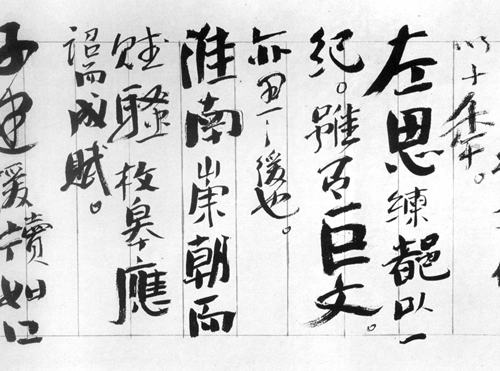 以十年。
左思練都以一
紀。雖有巨文。
亦思之緩也。
淮南崇朝而
賦騷枚皋應
詔而成賦。
子建援牘如口